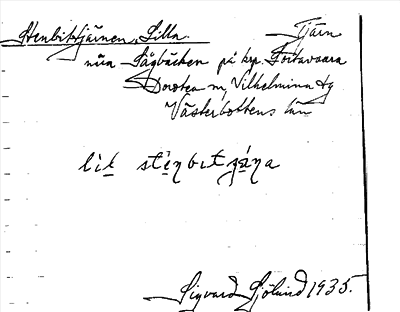 Stenbittjärnen, Lilla. Tjärn
nära Sågbäcken på krp. Stortavaara
Dorotea sn, Vilhelmina tg
Västerbottens län
lit stenbitxäna
Sigvard Sjölund 1935.